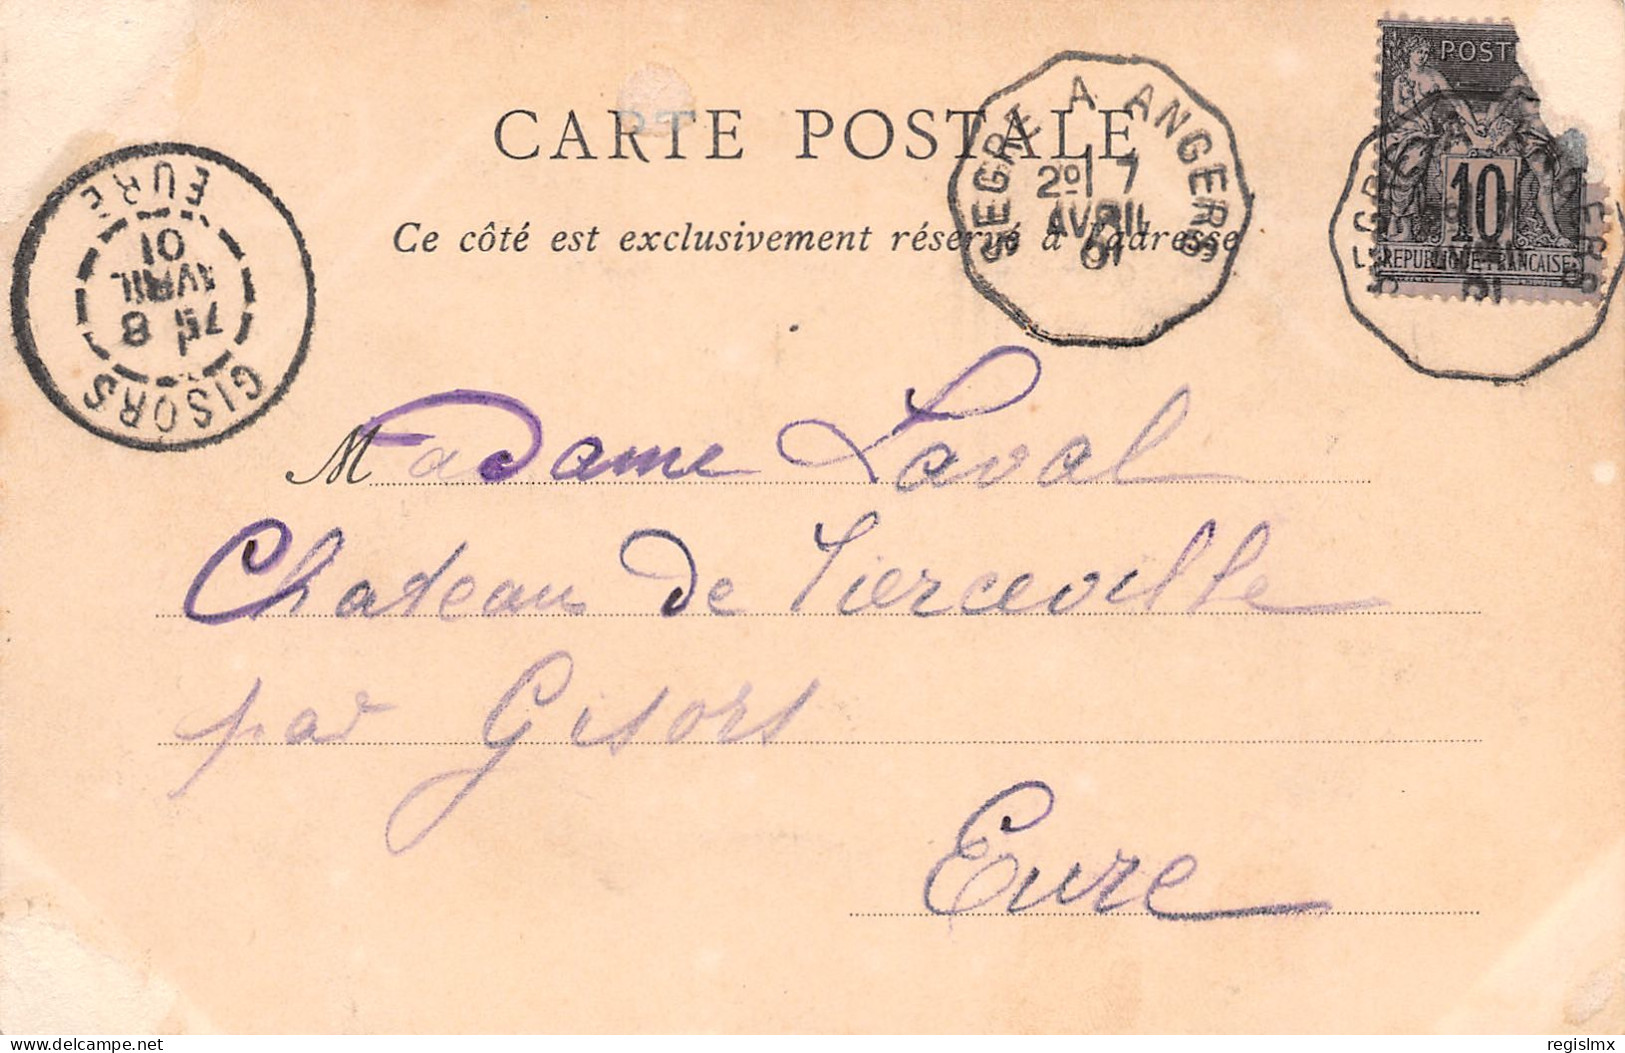 CARTE POSTALE
Ce côté est exclusivement réservé à l'adresse
SEGRÉ A ANGERS
2º 7
AVRIL
01
POST
10
REPUBLIQUE FRANCAISE
GISORS
7 8
AVRIL
01
EURE
Madame Laval
Chateau de Tierceville
par Gisors
Eure
delcampe.net
regislmx